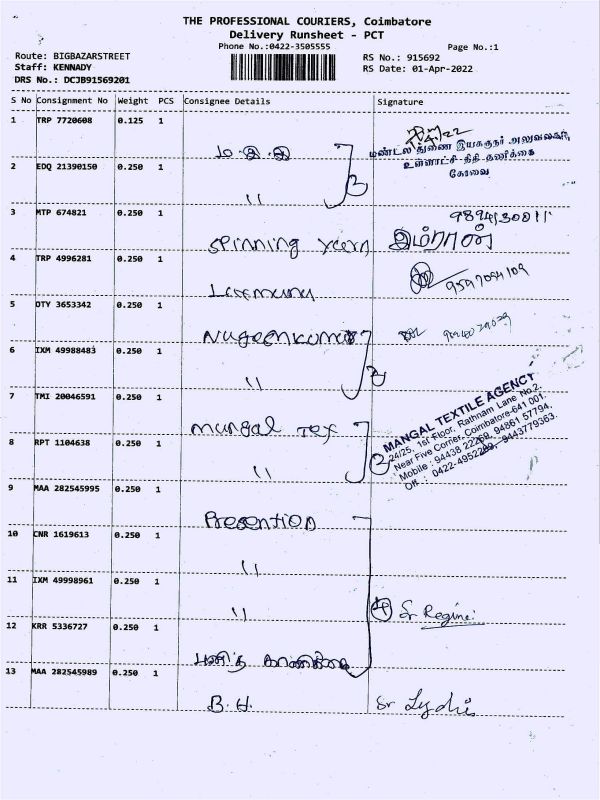 THE PROFESSIONAL COURIERS, Coimbatore
Delivery Runsheet - PCT
Phone No.:0422-3505555
Page No.:1
Route: BIGBAZARSTREET
Staff: KENNADY
DRS No.: DCJB91569201
RS No.: 915692
RS Date: 01-Apr-2022
S No Consignment No Weight PCS Consignee Details Signature
1 TRP 7720608 0.125 1
மண்டல துணை இயக்குநர் அலுவலகம்,
உள்ளாட்சி நிதி தணிக்கை
கோவை
2 EDQ 21390150 0.250 1
"
3 MTP 674821 0.250 1
Spinning இம்ரான்
4 TRP 4996281 0.250 1
5 OTY 3653342 0.250 1
6 IXM 49988483 0.250 1
" 2
7 TMI 20046591 0.250 1
Mangal Tex
8 RPT 1104638 0.250 1
" 2
MANGAL TEXTILE AGENCY
24/25, 1st Floor, Rathnam Lane No.2,
Near Five Corner, Coimbatore-641 001.
Mobile : 94438 22269, 94861 57794,
Off : 0422-4952289, 9443779363.
9 MAA 282545995 0.250 1
Presention
10 CNR 1619613 0.250 1
"
11 IXM 49998961 0.250 1
" 4 Sr Regine
12 KRR 5336727 0.250 1
13 MAA 282545989 0.250 1
B.H. Sr Lydia